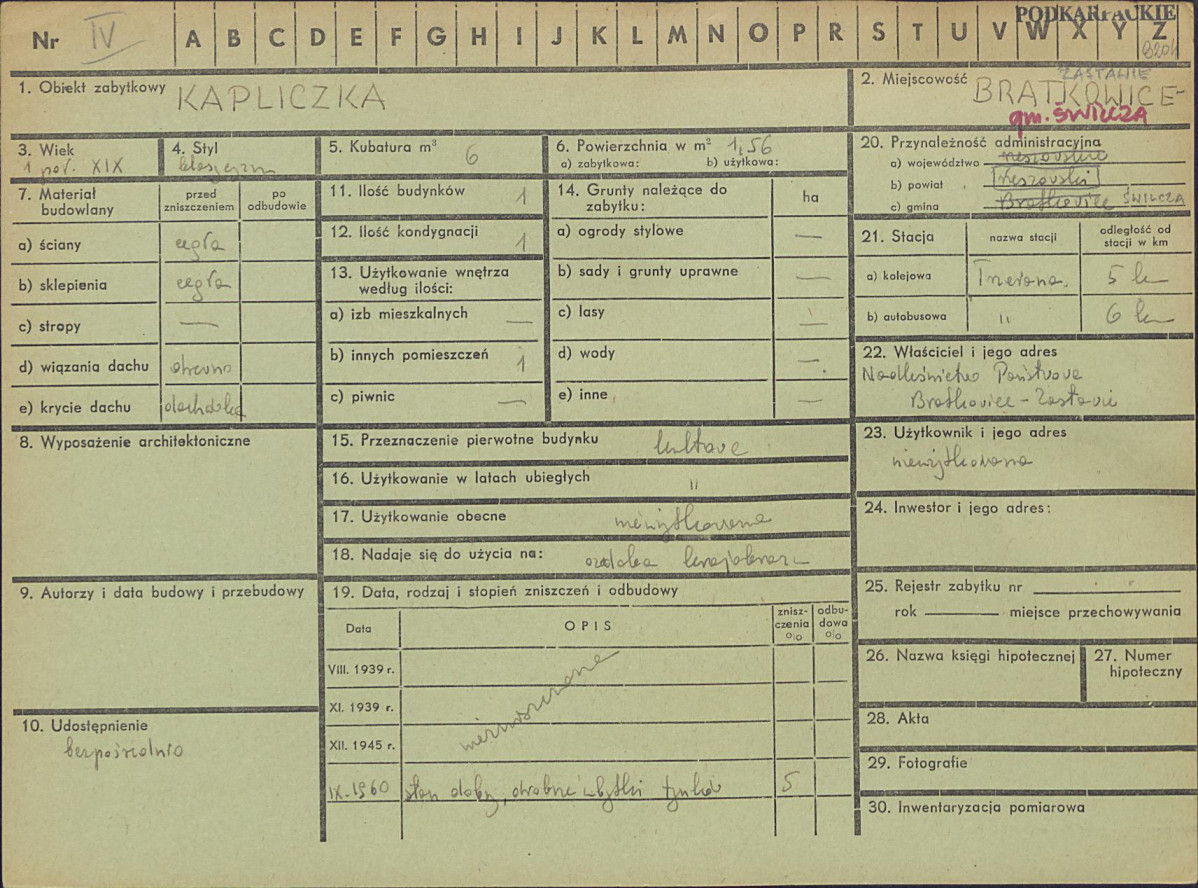 PODKARPACKIE
Nr IV A B C D E F G H I J K L M N O P R S T U V W X Y Z
9204
1. Obiekt zabytkowy KAPLICZKA
2. Miejscowość ZASTAWIE
BRATKOWICE-
gm. ŚWILCZA
3. Wiek
1 poł. XIX
4. Styl
klasycyzm
5. Kubatura m³ 6
6. Powierzchnia w m² 1,56
a) zabytkowa: b) użytkowa:
20. Przynależność administracyjna
a) województwo rzeszowskie
b) powiat rzeszowski
c) gmina Bratkowice ŚWILCZA
7. Materiał budowlany
przed zniszczeniem
po odbudowie
a) ściany cegła
b) sklepienia cegła
c) stropy —
d) wiązania dachu drewno
e) krycie dachu dachówka
11. Ilość budynków 1
12. Ilość kondygnacji 1
13. Użytkowanie wnętrza
według ilości:
a) izb mieszkalnych —
b) innych pomieszczeń 1
c) piwnic —
14. Grunty należące do
zabytku:
ha
a) ogrody stylowe —
b) sady i grunty uprawne —
c) lasy —
d) wody —
e) inne —
21. Stacja
nazwa stacji
odległość od
stacji w km
a) kolejowa Trzciana 5 km
b) autobusowa " 6 km
22. Właściciel i jego adres
Nadleśnictwo Państwowe
Bratkowice - Zastawie
8. Wyposażenie architektoniczne
15. Przeznaczenie pierwotne budynku kultowe
16. Użytkowanie w latach ubiegłych "
17. Użytkowanie obecne nieużytkowana
18. Nadaje się do użycia na: ozdoba krajobrazu
23. Użytkownik i jego adres
nieużytkowana
24. Inwestor i jego adres:
9. Autorzy i data budowy i przebudowy
19. Data, rodzaj i stopień zniszczeń i odbudowy
Data
OPIS
znisz-
czenia
o|o
odbu-
dowa
o|o
VIII. 1939 r.
XI. 1939 r.
XII. 1945 r.
niezniszczone
IX. 1960 stan dobry, drobne ubytki tynków 5
25. Rejestr zabytku nr
rok — miejsce przechowywania
26. Nazwa księgi hipotecznej
27. Numer
hipoteczny
10. Udostępnienie
bezpośrednio
28. Akta
29. Fotografie
30. Inwentaryzacja pomiarowa